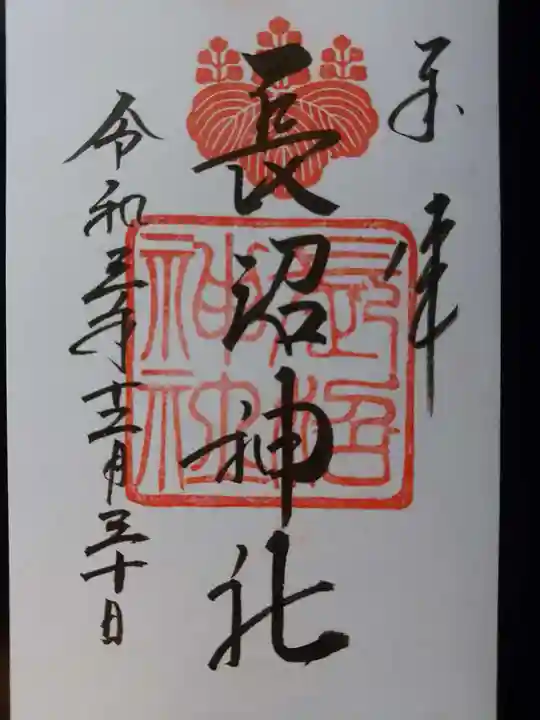 奉拝
長沼神社
長沼
神社
令和三年十二月三十日